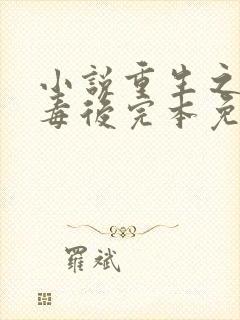 小說重生之
毒後完本免
羅斌